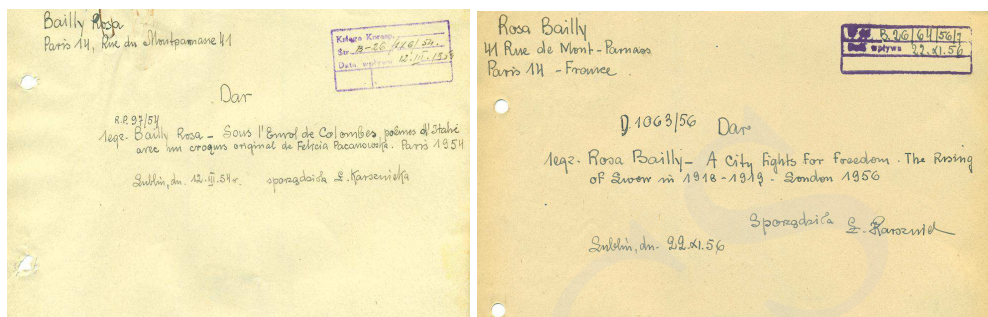 Bailly Rosa
Paris 14, Rue du Montparnasse 41
Księga Koresp.
Str. B-26/ /54.
Data wpływu 12.III.
Dar
R.P. 97/54
1 egz. Bailly Rosa – Sous l'Envol de Colombes, poèmes d'Italie
avec un croquis original de Felicia Pacanowska. Paris 1954
Lublin, dn. 12.III.54 r. sporządziła Ł. Karsznicka
Rosa Bailly
41 Rue de Mont-Parnass
Paris 14 – France.
B.26/64/56/7
Data wpływu 22.XI.56
D.1063/56 Dar
1 egz. Rosa Bailly – A City Fights for Freedom. The Rising
of Lwow in 1918-1919 – London 1956
Sporządziła
Lublin, dn. 22.XI.56